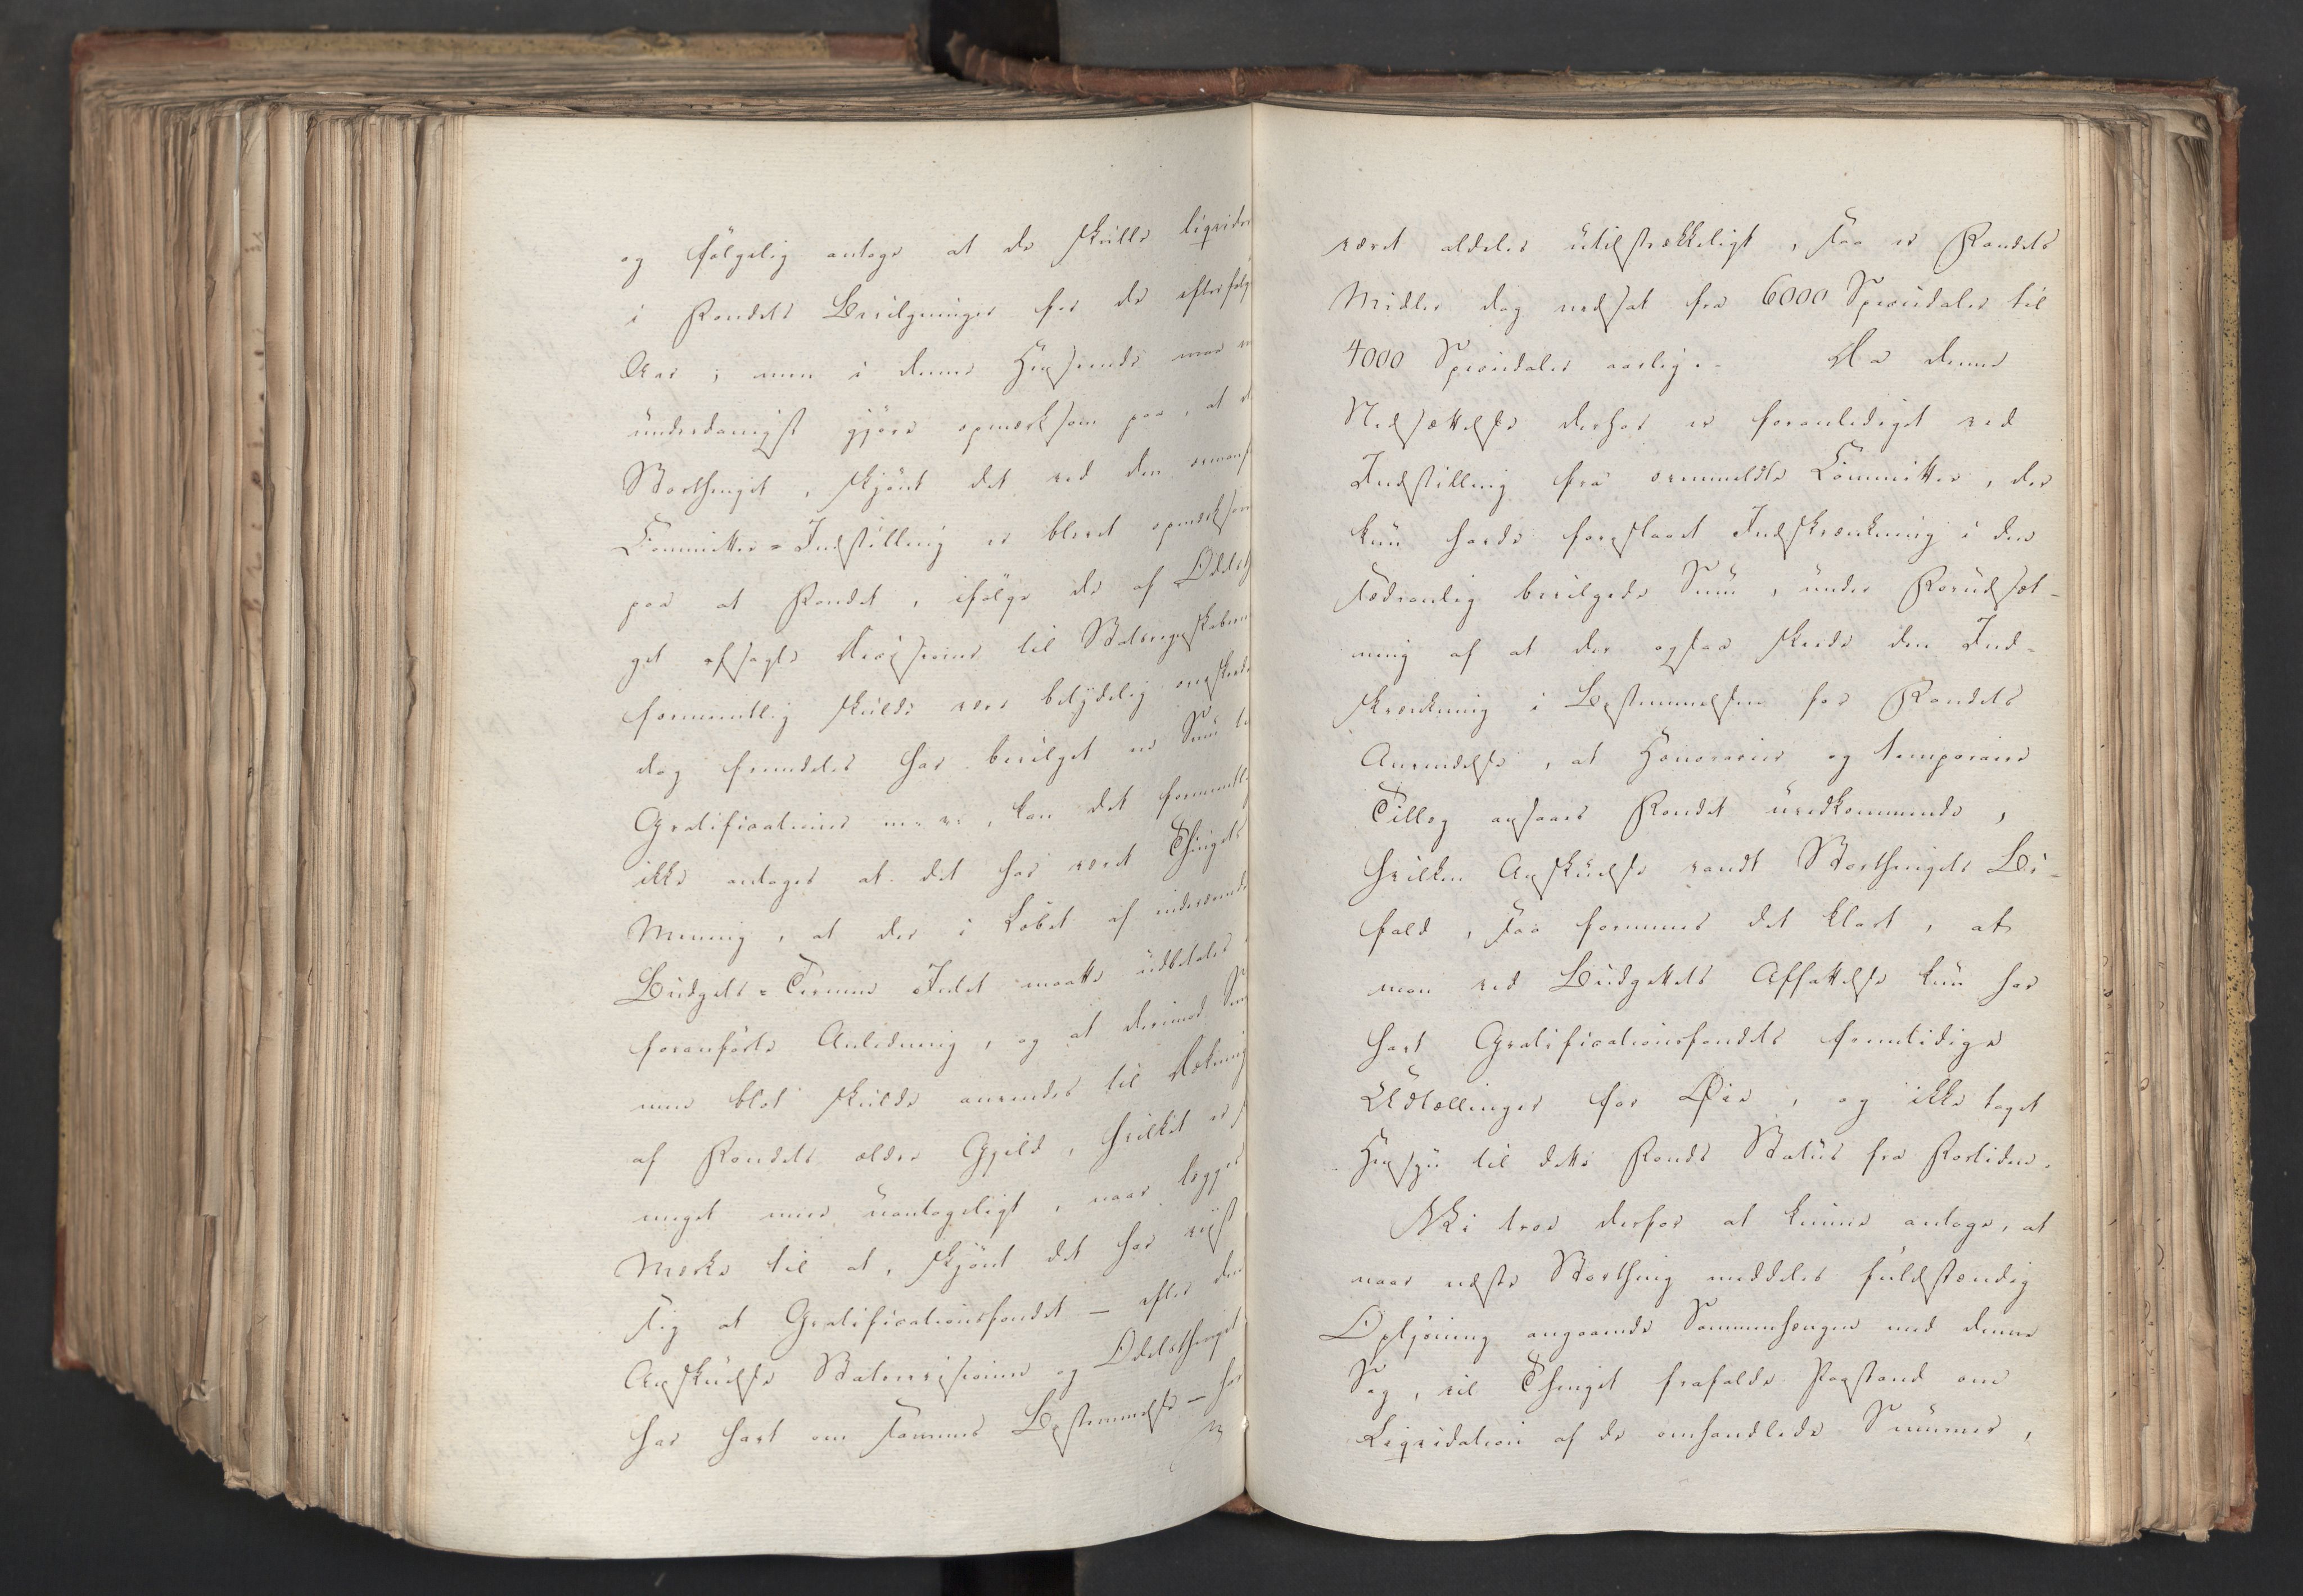 og følgelig antage at de skulle liqvider
i Fondets Bevilgninger for de efterfølg
Aar; men i denne Henseende maa vi
underdanigst gjøre opmærksom paa, at d
Storthinget, skjønt det ved den ovenanf
Committee-Indstilling er blevet opmærksom
paa at Fondet, ifølge de af Odelsth
get afsagte Decisioner til Statsregnskaberne
formeentlig skulde være betydelig
dog fremdeles har bevilget en Sum til
Gratificationer m. v., kan det formeentlig
ikke antages at det har været Thingets
Mening, at der i Løbet af indeværende
Budgets-Termin Intet maatte udbetales i
foranførte Anledning, og at derimod Sum
men blot skulde anvendes til Dækning
af Fondets ældre Gjeld, hvilket er s
meget mere uantageligt, naar lægges
Mærke til at, skjønt det har viist
sig at Gratificationsfondet – efter den
Anskuelse Statsrevisionen og Odelsthinget
har havt om sammes Bestemmelse – har
været aldeles utilstrækkeligt, saa er Fondets
Midler dog nedsat fra 6000 Speciedaler til
4000 Speciedaler aarlig. – Da denne
Nedsættelse derhos er foranlediget ved
Indstilling fra ovenmeldte Committee, der
kun havde foreslaaet Indskrænkning i den
sædvanlig bevilgede Sum, under Forudsæt-
ning af at der ogsaa skeede den Ind-
skrænkning i Bestemmelsen for Fondets
Anvendelse, at Honorarier og temporaire
Tillæg ansaaes Fondet uvedkommende,
hvilken Anskuelse vandt Storthingets Bi-
fald, saa formenes det klart, at
man ved Budgettets Affattelse kun har
havt Gratificationsfondets fremtidige
Udtællinger for Øie, og ikke taget
Hensyn til dette Fonds Status fra Fortiden.
Vi troe derfor at kunne antage, at
naar næste Storthing meddeles fuldstændig
Oplysning angaaende Sammenhængen med denne
Sag, vil Thinget frafalde Paastand om
Liqvidation af de omhandlede Summer,